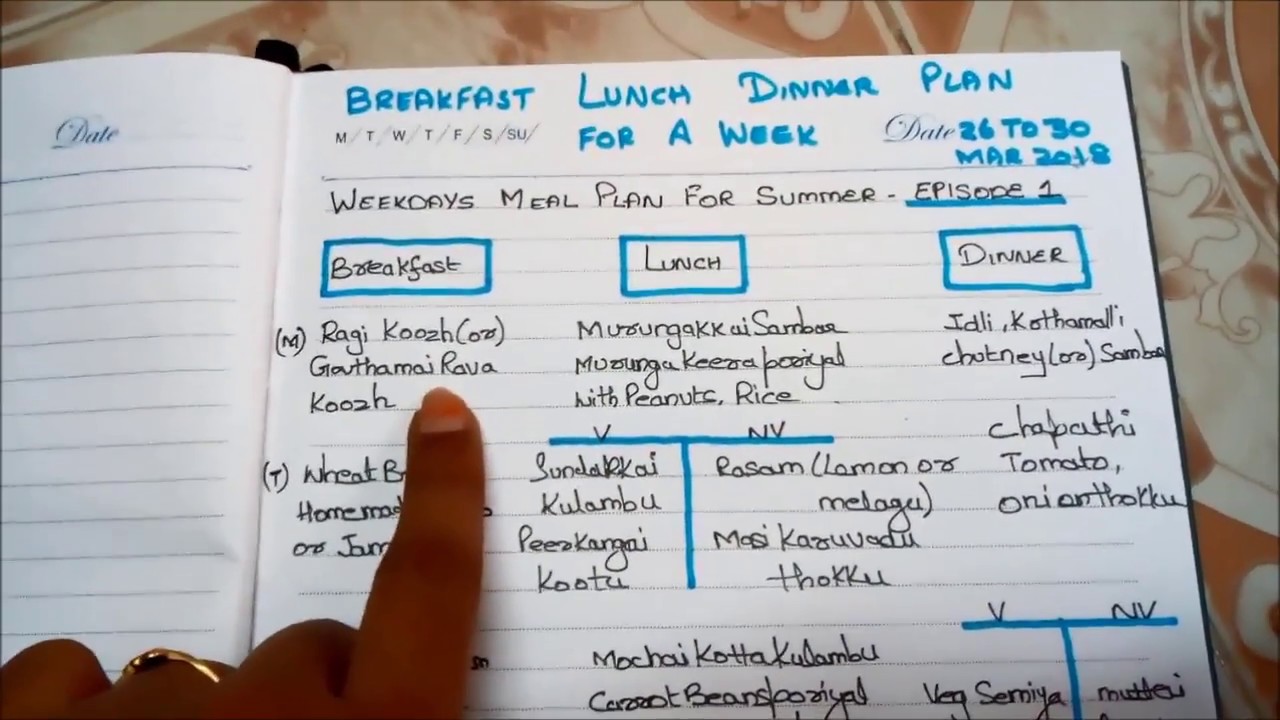 Date
BREAKFAST LUNCH DINNER PLAN
M / T / W / T / F / S / SU/ FOR A WEEK Date 26 TO 30
MAR 2018
WEEKDAYS MEAL PLAN FOR SUMMER - EPISODE 1
Breakfast LUNCH DINNER
(M) Ragi Koozh (or) Murungakkai Sambar Idli, Kothamalli
Gothamai Rava Murunga Keera poriyal chutney (or) Sambar
Koozh with Peanuts, Rice
V NV chapathi
(T) Wheat Sundakkai Rasam (Lamon or Tomato,
Kulambu melagu) onion thokku
or Jam Peerkangai Masi Karuvadu
Kootu thokku
V NV
Mochai Kotta Kulambu
Carrot Beans poriyal Veg Semiya muttai